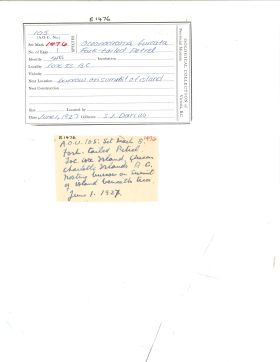 E 1476
105
(A.O.U. No.)
Set Mark 1476
No. of Eggs 1
Oceanodroma furcata
Fork-tailed Petrel
Identity
Incubation
Locality
Vicinity
Nest Location burrow on summit of island
Nest Construction
Size
Located by
Date June 1, 1927 Collector S.J. Darcus
OOLOGICAL COLLECTION of
Provincial Museum
Victoria, B.C.
E 1476
A.O.U. 105. Set Mark 1476
Fork-tailed Petrel
Island, Queen
Charlotte Islands B.C.
Nesting burrow on summit
of island beneath tree.
June 1. 1927.